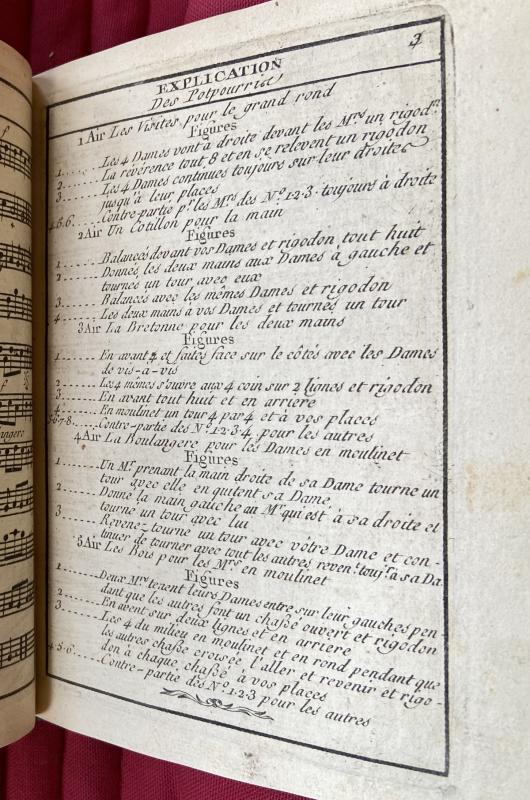 3
EXPLICATION
Des Potpourris
1 Air Les Visites pour le grand rond
Figures
1...... Les 4 Dames vont a droite devant les Mrs un rigodn
2...... La révérence tout 8 et en se relevent un rigodon
3...... Les 4 Dames continues toujours sur leur droite
jusqu'à leur places
4.5.6... Contre-partie pr les Mrs des No 1.2.3. toujours à droite
2 Air Un Cotillon pour la main
Figures
1...... Balancés devant vos Dames et rigodon tout huit
2...... Donnes les deux mains aux Dames à gauche et
tournés un tour avec eux
3...... Balancés avec les mêmes Dames et rigodon
4...... Les deux mains à vos Dames et tournés un tour
3 Air La Bretonne pour les deux mains
Figures
1...... En avant 4 et faites face sur le côtés avec les Dames
de vis-a-vis
2...... Les 4 mêmes s'ouvre aux 4 coin sur 2 lignes et rigodon
3...... En avant tout huit et en arriere
4...... En moulinet un tour 4 par 4 et à vos places
5.6.7.8... Contre-partie des No 1.2.3.4. pour les autres
4 Air La Boulangere pour les Dames en moulinet
Figures
1...... Un Mr prenant la main droite de sa Dame tourne un
tour avec elle en quitent sa Dame
2...... Donne la main gauche au Mr qui est à sa droite et
tourne un tour avec lui
3...... Revenez tourne un tour avec vôtre Dame et con-
tinuer de tourner avec tout les autres revent toujs à sa Da.
5 Air Les Bois pour les Mrs en moulinet
Figures
1...... Deux Mrs tenent leurs Dames entre sur leur gauches pen-
dant que les autres font un chaßé ouvert et rigodon
2...... En avent sur deux lignes et en arriere
3...... Les 4 du milieu en moulinet et en rond pendant que
les autres chaße croisée l'aller et revenir et rigo-
don à chaque chaßé à vos places
4.5.6... Contre-partie des No 1.2.3 pour les autres